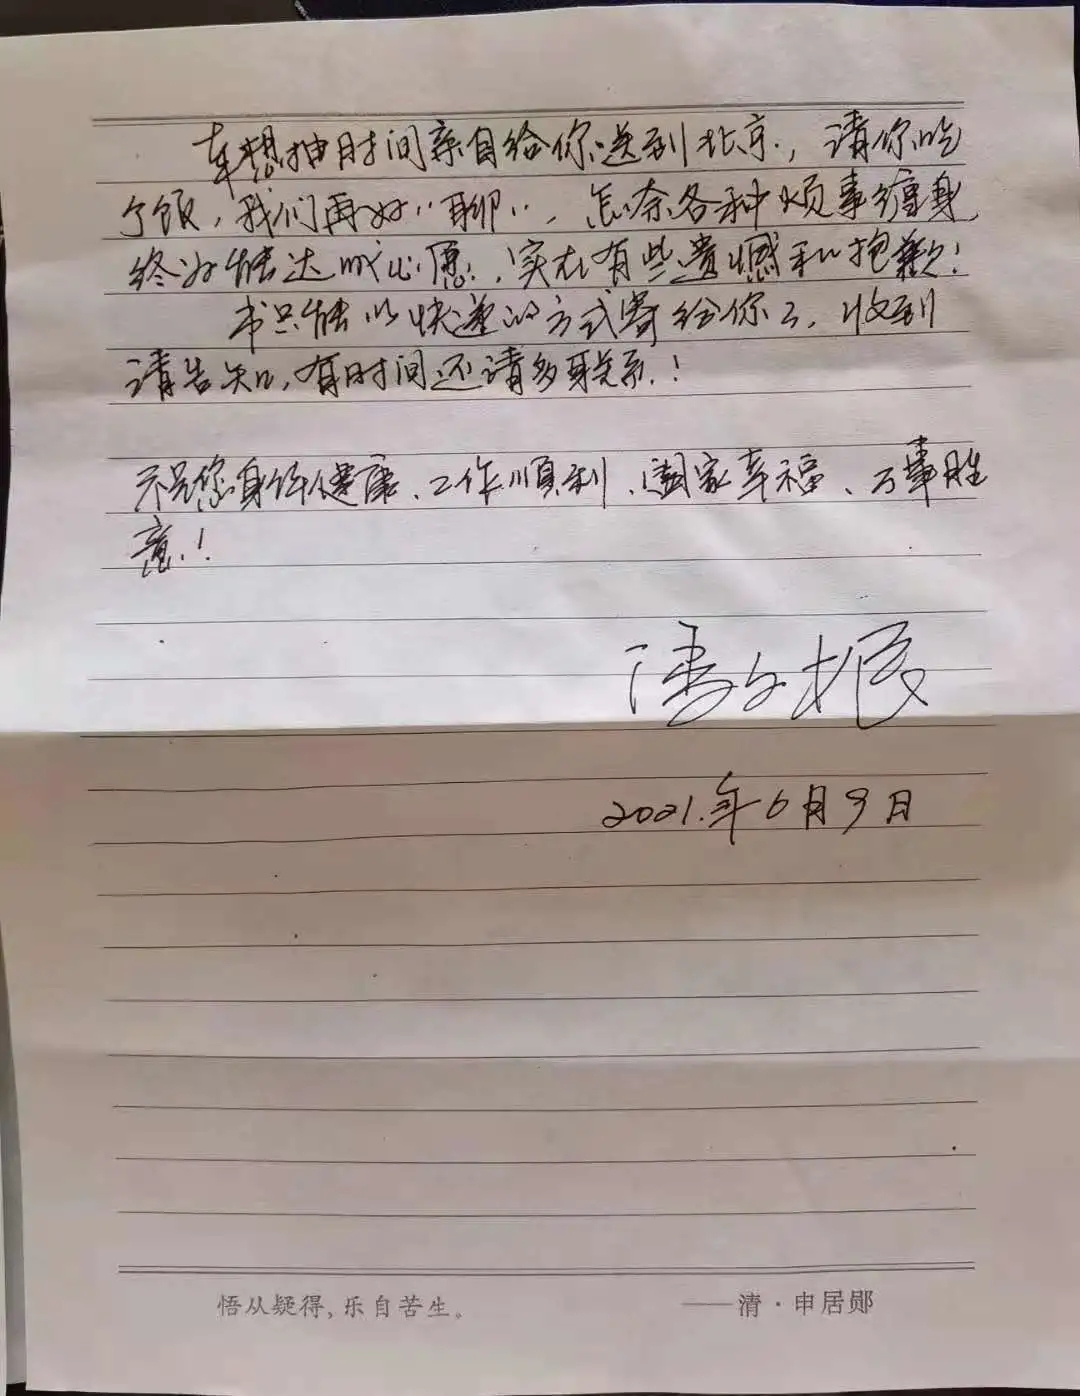 本想抽时间亲自给你送到北京,请你吃
个饭,我们再好〃聊〃,怎奈各种烦事缠身
终没能达成心愿,实在有些遗憾和抱歉!
书只能以快递的方式寄给你了,收到
请告知,有时间还请多联系!
祝您身体健康、工作顺利、阖家幸福、万事胜
意!
潘文振
2021.年6月9日
悟从疑得,乐自苦生。
——清·申居郧